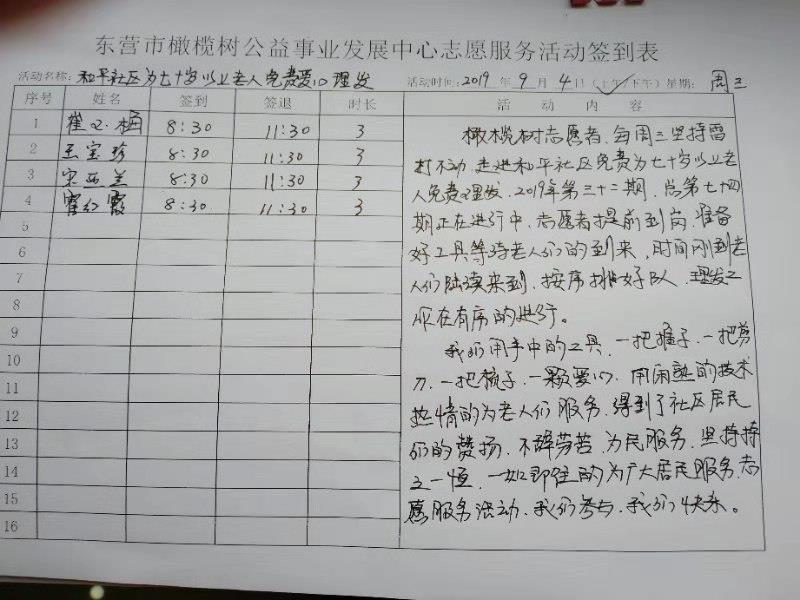 东营市橄榄树公益事业发展中心志愿服务活动签到表
活动名称：和平社区为七十岁以上老人免费爱心理发 活动时间：2019年9月4日（上午/下午）星期：周三
序号 姓名 签到 签退 时长 活动内容
1 崔 8:30 11:30 3
2 王宝珍 8:30 11:30 3
3 宋西兰 8:30 11:30 3
4 霍红霞 8:30 11:30 3
5
6
7
8
9
10
11
12
13
14
15
16
橄榄树志愿者，每周三坚持雷
打不动，走进和平社区免费为七十岁以上老
人免费理发，2019年第三十二期，总第七十四
期正在进行中，志愿者提前到岗，准备
好工具等待老人们的到来，时间刚到老
人们陆续来到，按序排好队，理发工
作在有序的进行。
我们用手中的工具，一把推子，一把剪
刀，一把梳子，一颗爱心，用闲熟的技术
热情的为老人们服务，得到了社区居民
们的赞扬，不辞劳苦，为民服务，坚持持
之一恒，一如即往的为广大居民服务，志
愿服务活动，我们参与，我们快乐。